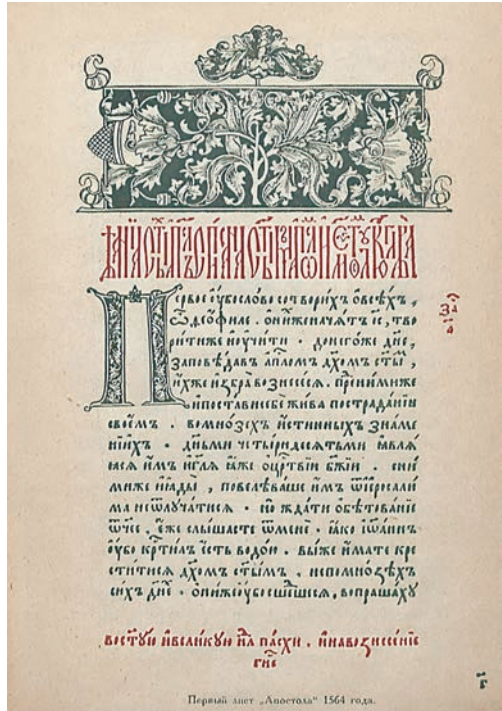 Первое ѹ҆бо сло́во сотвори́хъ ѻ҆ всѣ́хъ ,
ѽ , де́ѻфиле . ѻ҆ ни́хже нача́тъ і҆с҃ , тво
ри́ти же и҆ ѹ҆чи́ти · до него́же дн҃е ,
заповѣ́давъ а҆пⷭ҇ломъ дх҃омъ ст҃ы́мъ ,
и҆́хже и҆збра̀ вознесе́сѧ . пре́д ни́миже
и҆ поста́ви себѐ жи́ва по страда́нїи
свое́мъ . во мно́зѣхъ и҆́стинныхъ зна́ме
нїихъ . дн҃ьми четы́ридесѧтьми ꙗ҆влѧ́
ꙗсѧ и҆̀мъ и҆ гл҃ѧ ꙗ҆́же ѻ҆ црⷭ҇твїи бж҃їи . с ни́
миже и҆ ꙗ҆ды̀ , повелѣва́ше и҆̀мъ ѿ і҆ерⷭ҇али́
ма не ѿлꙋча́тисѧ . но̀ жда́ти ѻ҆бѣтова́нїе
ѿч҃ее , є҆́же слы́шасте ѿ менѐ . ꙗ҆́ко і҆ѡ҃а́ннъ
ѹ҆́бо крⷭ҇ти́лъ є҆́сть водо́ю . вы́ же и҆́мате кре
сти́тисѧ дх҃омъ ст҃ы́мъ , не по мно́ѕѣхъ
си́хъ дн҃ехъ . ѻ҆ни́ же ѹ҆́бо сше́дшесѧ , вопраша́хꙋ
за҄ а҃
в ст҃ꙋ́ю и҆ вели́кꙋю нⷣѣлю па́схи . и҆ на вознесе́нїе
гн҃е
Первый лист „Апостола" 1564 года.